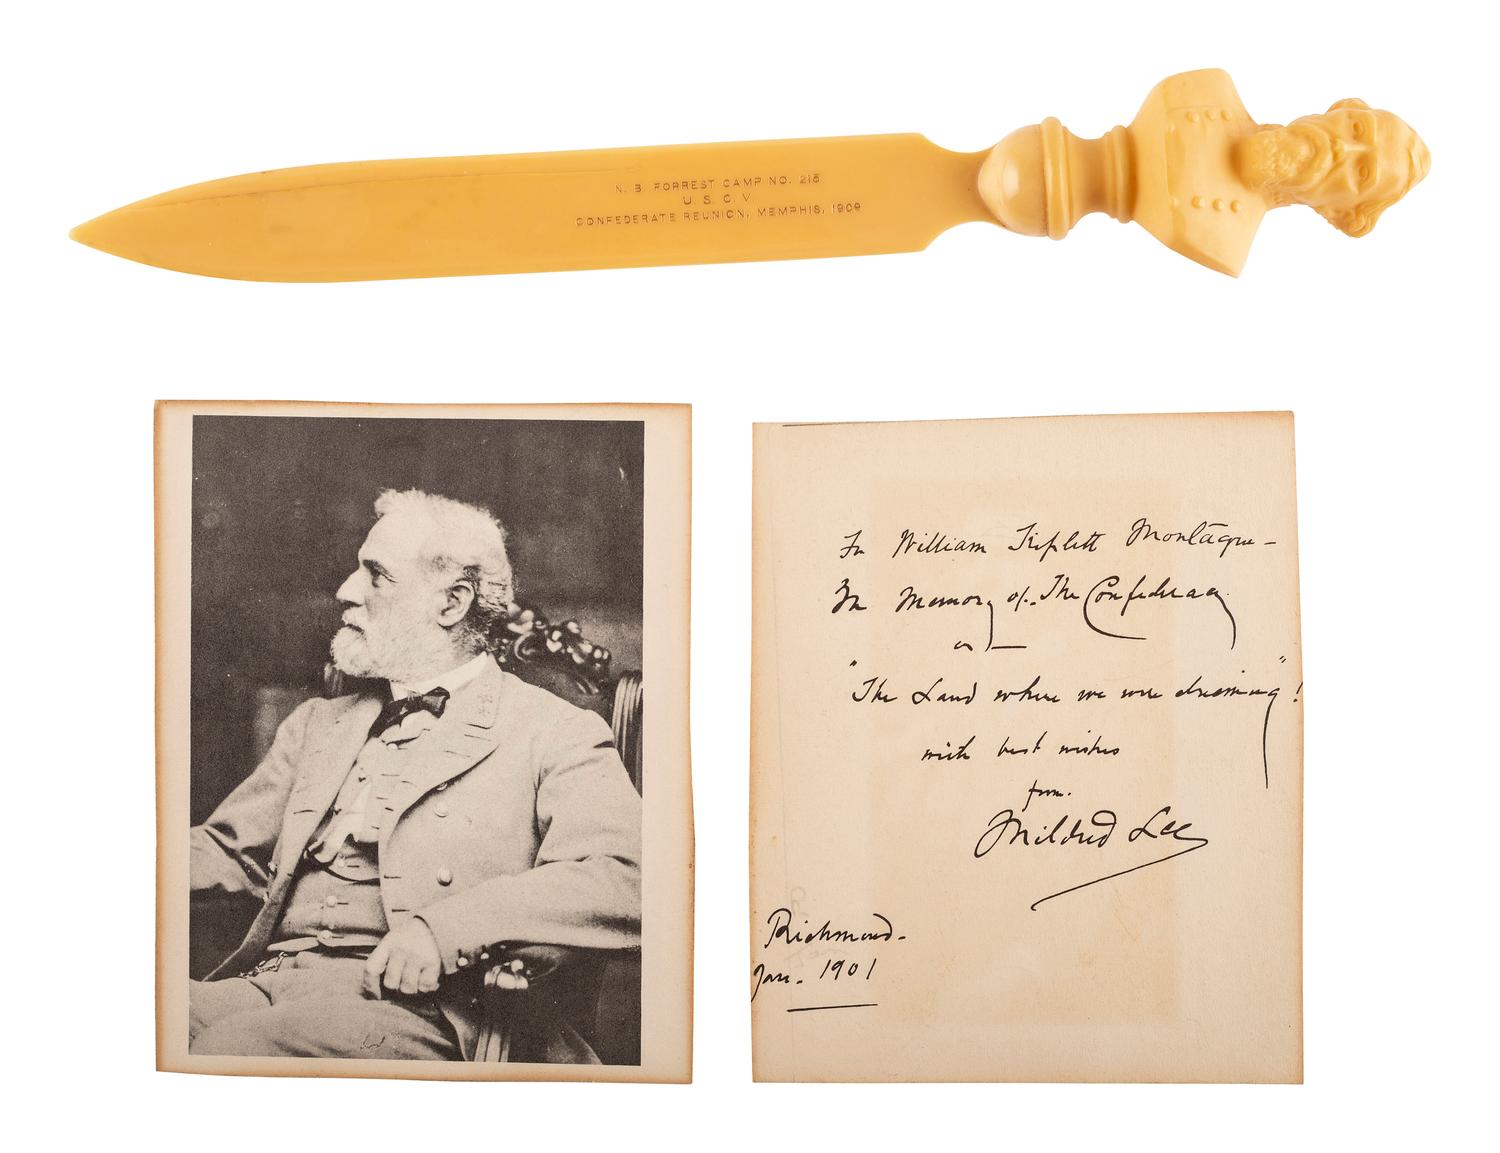 N. B. FORREST CAMP NO. 215
U. S. C. V.
CONFEDERATE REUNION, MEMPHIS, 1909
To William Triplett Montague –
In Memory of The Confederacy
or –
"The Land where we were dreaming"!
with best wishes
from.
Mildred Lee
Richmond –
Jan. 1901